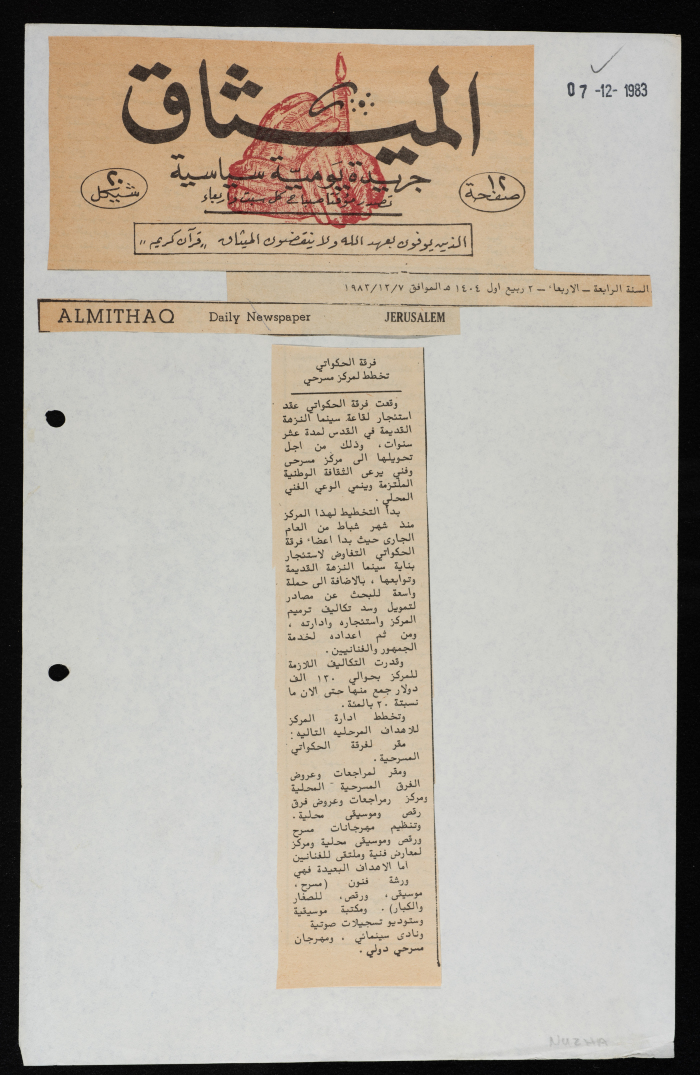 07 -12- 1983
الميثاق
جريدة يومية سياسية
١٢ صفحة
٢٠ شيكل
الذين يوفون بعهد الله ولا ينقضون الميثاق ,,قرآن كريم,,
السنة الرابعة – الاربعاء – ٢ ربيع اول ١٤٠٤ هـ الموافق ١٩٨٣/١٢/٧
ALMITHAQ Daily Newspaper JERUSALEM
فرقة الحكواتي
تخطط لمركز مسرحي
وقعت فرقة الحكواتي عقد
استئجار لقاعة سينما النزهة
القديمة في القدس لمدة عشر
سنوات، وذلك من اجل
تحويلها الى مركز مسرحى
وفني يرعى الثقافة الوطنية
الملتزمة وينمي الوعي الفني
المحلي.
بدأ التخطيط لهذا المركز
منذ شهر شباط من العام
الجارى حيث بدا اعضاء فرقة
الحكواتي التفاوض لاستئجار
بناية سينما النزهة القديمة
وتوابعها ، بالاضافة الى حملة
واسعة للبحث عن مصادر
لتمويل وسد تكاليف ترميم
المركز واستئجاره وادارته ،
ومن ثم اعداده لخدمة
الجمهور والفنانيين.
وقدرت التكاليف اللازمة
للمركز بحوالي ١٣٠ الف
دولار جمع منها حتى الان ما
نسبتة ٢٠ بالمئة.
وتخطط ادارة المركز
للاهداف المرحليه التاليه:
مقر لفرقة الحكواتي
المسرحية.
ومقر لمراجعات وعروض
الفرق المسرحية المحلية
ومركز رمراجعات وعروض فرق
رقص وموسيقى محلية.
وتنظيم مهرجانات مسرح
ورقص وموسيقى محلية ومركز
لمعارض فنية وملتقى للفنانين
اما الاهداف البعيدة فهي
ورشة فنون (مسرح.
موسيقى، ورقص، للصغار
والكبار). ومكتبة موسيقية
وستوديو تسجيلات صوتية
ونادى سينمائي . ومهرجان
مسرحي دولي.
NUZHA